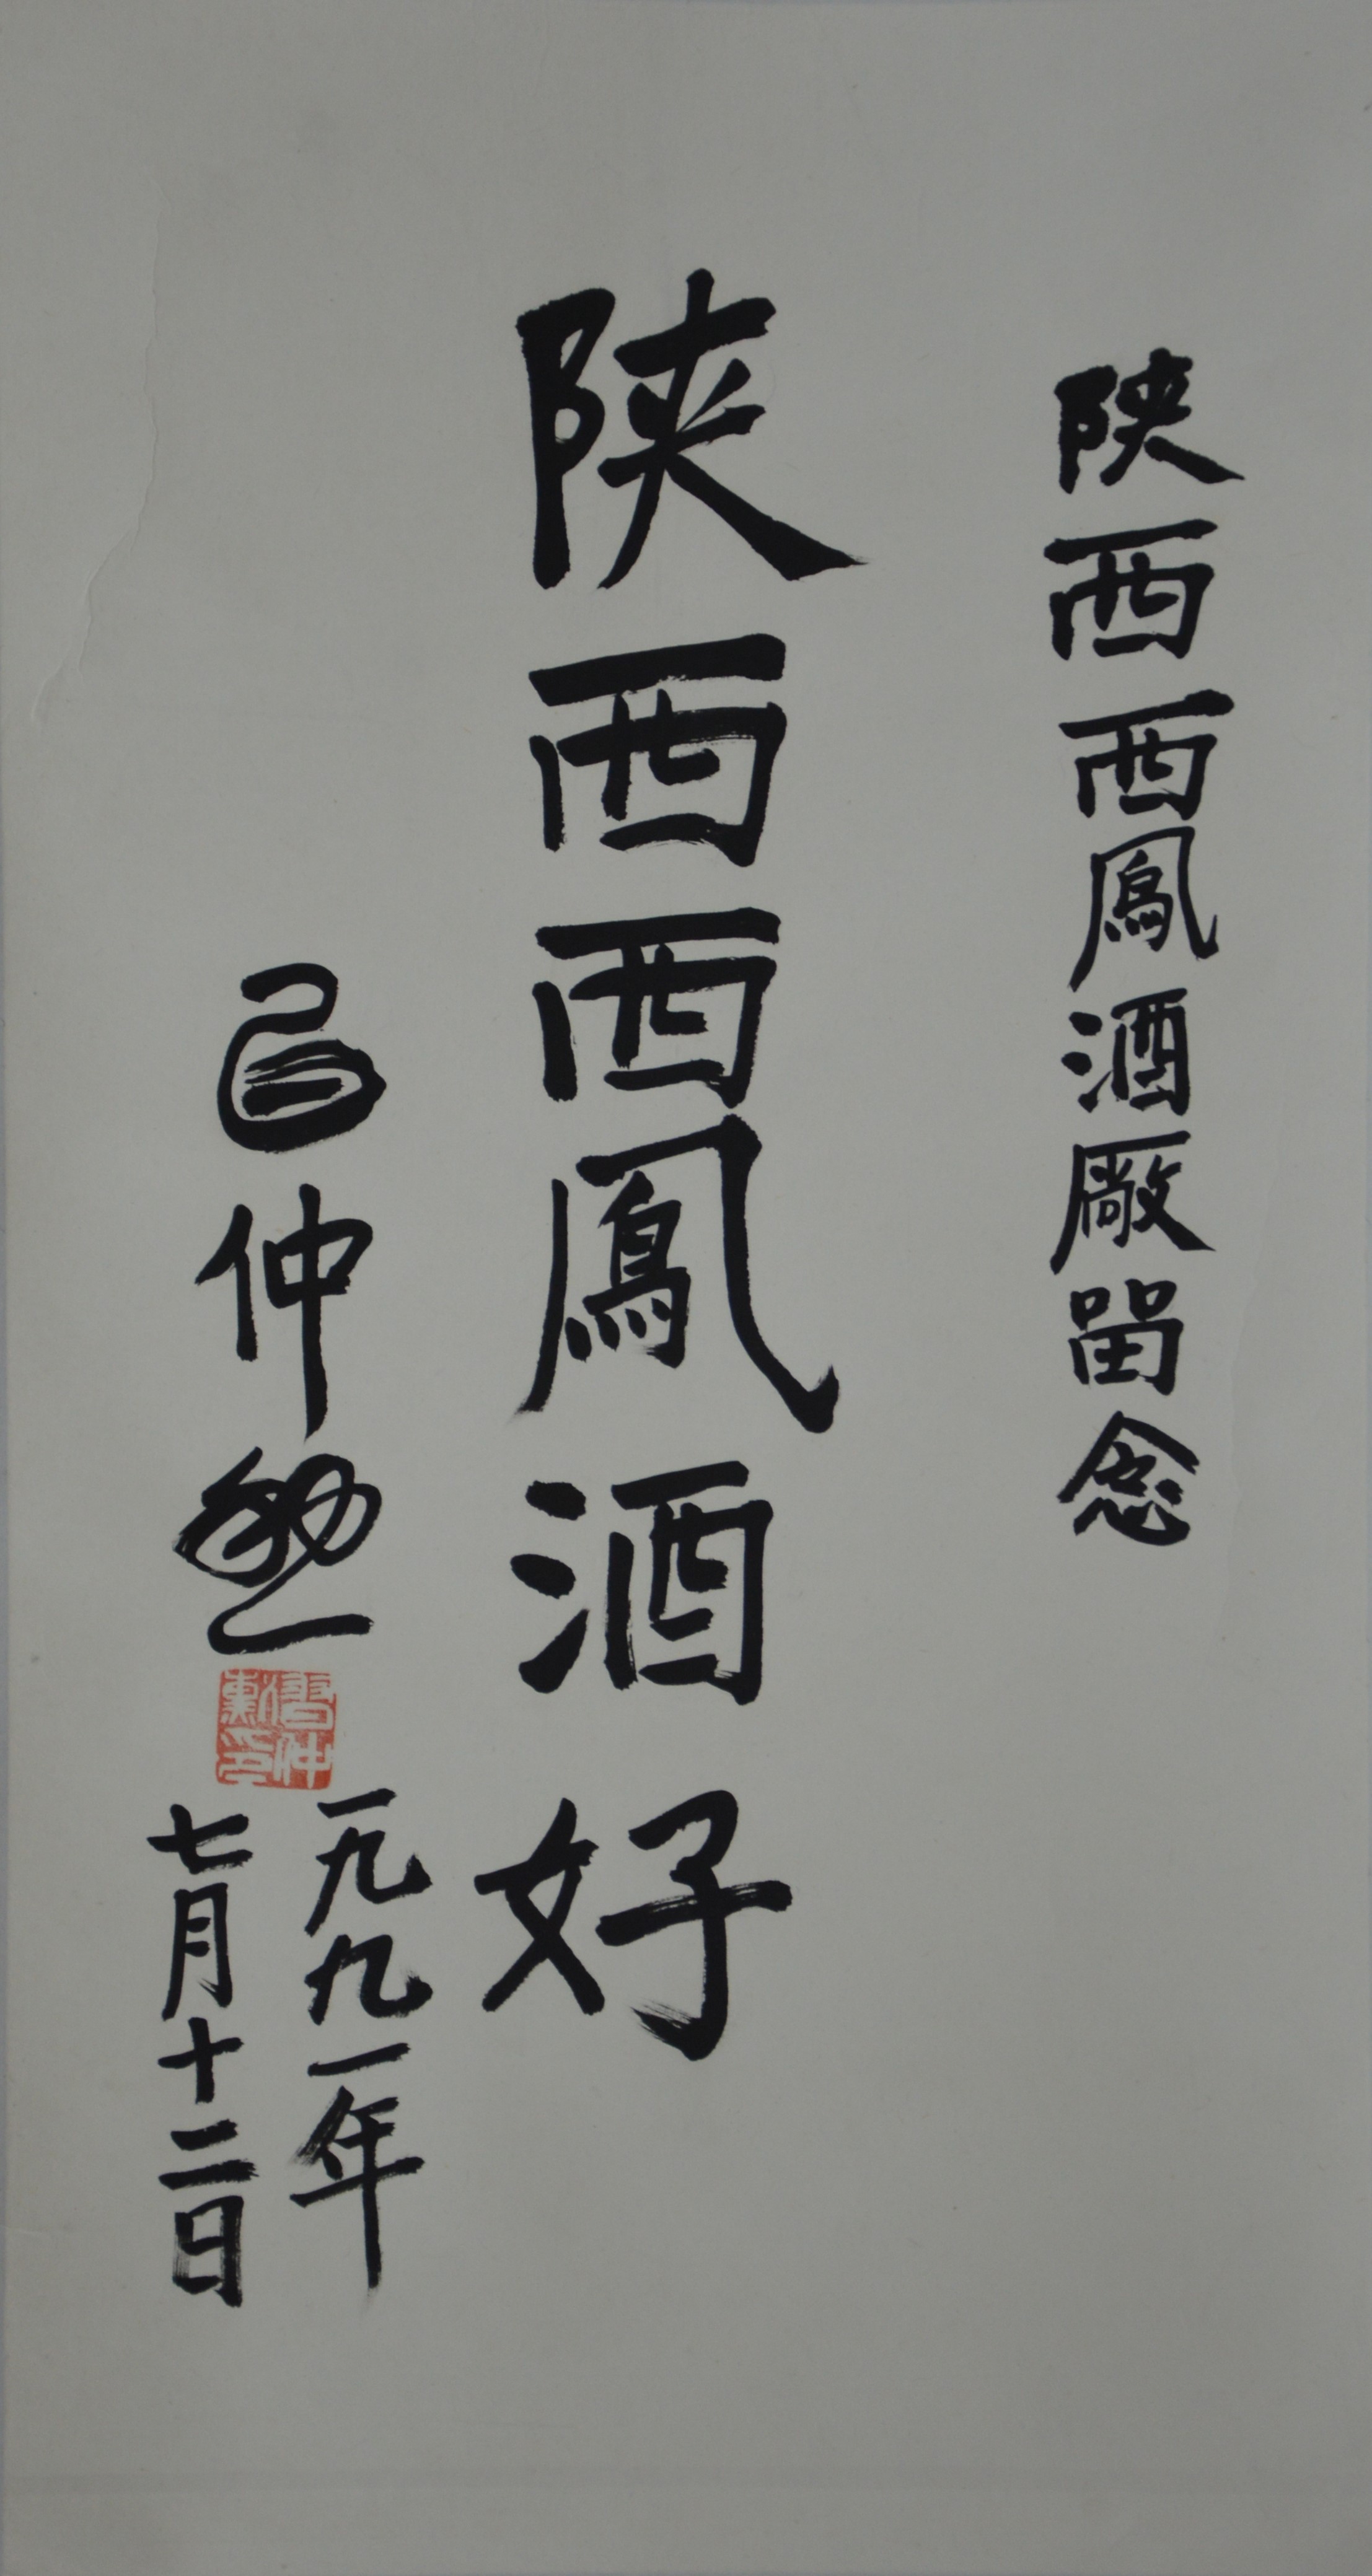 陕西西鳳酒廠留念
陕西西鳳酒好
習仲勳
習仲勳印
一九九一年
七月十二日